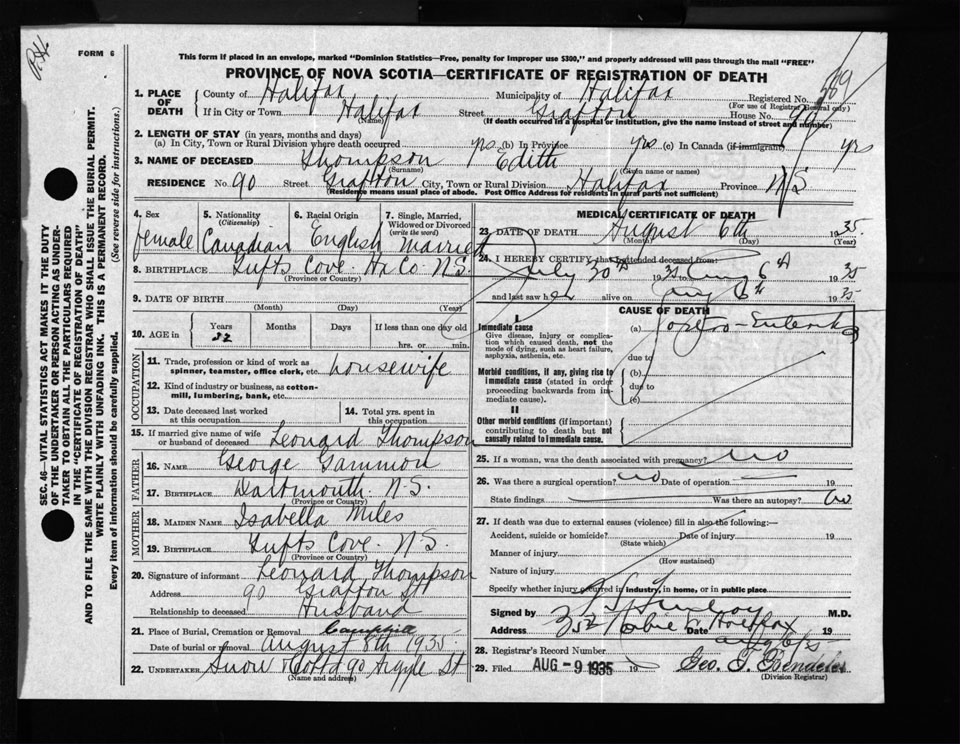 FORM 6
This form if placed in an envelope, marked "Dominion Statistics—Free, penalty for improper use $300," and properly addressed will pass through the mail "FREE"
PROVINCE OF NOVA SCOTIA—CERTIFICATE OF REGISTRATION OF DEATH
SEC. 46—VITAL STATISTICS ACT MAKES IT THE DUTY
OF THE UNDERTAKER OR PERSON ACTING AS UNDER-
TAKER TO OBTAIN ALL THE PARTICULARS REQUIRED
IN THE "CERTIFICATE OF REGISTRATION OF DEATH"
AND TO FILE THE SAME WITH THE DIVISION REGISTRAR WHO SHALL ISSUE THE BURIAL PERMIT.
WRITE PLAINLY WITH UNFADING INK. THIS IS A PERMANENT RECORD.
Every item of information should be carefully supplied. (See reverse side for instructions.)
1. PLACE OF DEATH
County of Halifax Municipality of Halifax Registered No. 589
(For use of Registrar General only)
If in City or Town Halifax Street Grafton House No. 90
(Name) (If death occurred in a hospital or institution, give the name instead of street and number)
2. LENGTH OF STAY (in years, months and days)
(a) In City, Town or Rural Division where death occurred yrs (b) In Province yrs (c) In Canada (if immigrant) yrs
3. NAME OF DECEASED Thompson Edith
(Surname) (Given name or names)
RESIDENCE No. 90 Street Grafton City, Town or Rural Division Halifax Province N S
(Residence means usual place of abode. Post Office Address for residents in rural parts not sufficient)
4. Sex female
5. Nationality (Citizenship) Canadian
6. Racial Origin English
7. Single, Married, Widowed or Divorced (write the word) Married
8. BIRTHPLACE Tufts Cove. Hx Co. N.S.
(Province or Country)
9. DATE OF BIRTH
(Month) (Day) (Year)
10. AGE in Years Months Days If less than one day old
52 hrs. or min.
OCCUPATION
11. Trade, profession or kind of work as
spinner, teamster, office clerk, etc. housewife
12. Kind of industry or business, as cotton-
mill, lumbering, bank, etc.
13. Date deceased last worked at this occupation
14. Total yrs. spent in this occupation
15. If married give name of wife or husband of deceased Leonard Thompson
FATHER
16. NAME George Gammon
17. BIRTHPLACE Dartmouth. N.S.
(Province or Country)
MOTHER
18. MAIDEN NAME Isabella Miles
19. BIRTHPLACE Tufts Cove. N.S.
(Province or Country)
20. Signature of informant Leonard Thompson
Address 90 Grafton St
Relationship to deceased Husband
21. Place of Burial, Cremation or Removal Camphill
Date of burial or removal August 8th 1935
22. UNDERTAKER Snow & Co Ltd 90 Argyle St
(Name and address)
MEDICAL CERTIFICATE OF DEATH
23. DATE OF DEATH August 6th 1935
(Month) (Day) (Year)
24. I HEREBY CERTIFY that I attended deceased from:
July 30th 1935 to Aug 6th 1935
and last saw her alive on Aug 6th 1935
CAUSE OF DEATH
I
Immediate cause (a)
Give disease, injury or complica-
tion which caused death, not the
mode of dying, such as heart failure,
asphyxia, asthenia, etc.
due to
Morbid conditions, if any, giving rise to
immediate cause (stated in order
proceeding backwards from im-
mediate cause).
(b)
due to
(c)
II
Other morbid conditions (if important)
contributing to death but not
causally related to immediate cause.
25. If a woman, was the death associated with pregnancy? no
26. Was there a surgical operation? no Date of operation — 19
State findings Was there an autopsy? no
27. If death was due to external causes (violence) fill in also the following:—
Accident, suicide or homicide? Date of injury 19
(State which)
Manner of injury
(How sustained)
Nature of injury
Specify whether injury occurred in industry, in home, or in public place
Signed by M.D.
Address Halifax Date 19
28. Registrar's Record Number
29. Filed AUG -9 1935 19
(Division Registrar)